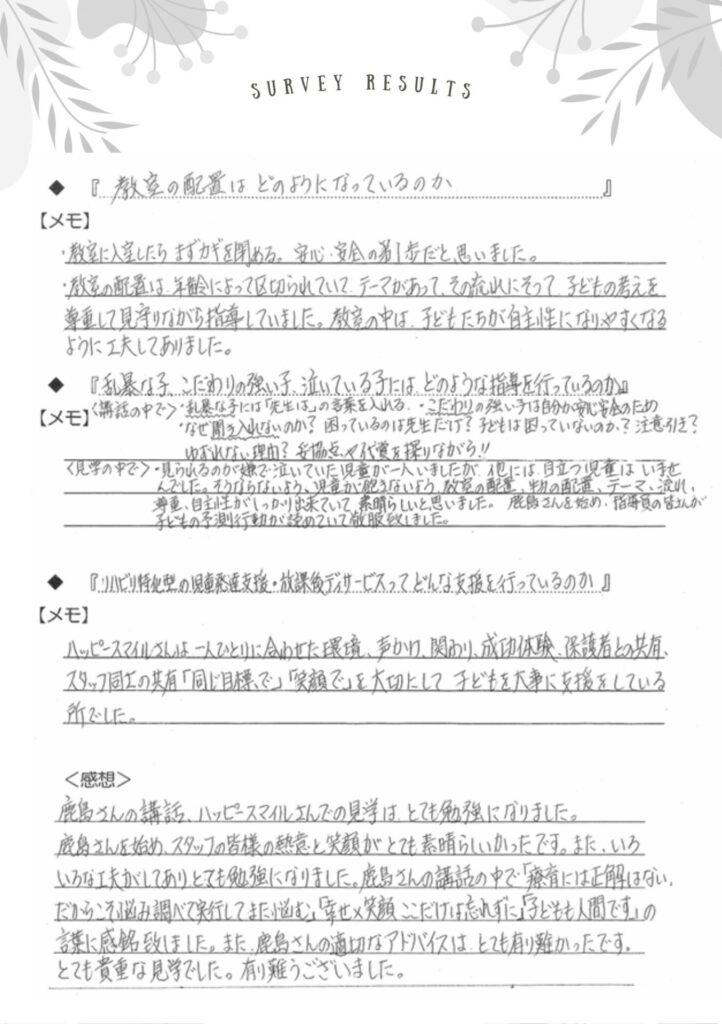 SURVEY RESULTS
◆ 『 教室の配置は どのようになっているのか 』
【メモ】
・教室に入室したら まずカギを閉める。安心・安全の第1歩だと思いました。
・教室の配置は 年齢によって区切られていて、テーマがあって、その流れにそって 子どもの考えを
尊重して見守りながら指導していました。教室の中は、子どもたちが自主性になりやすくなる
ように工夫してありました。
◆ 『乱暴な子、こだわりの強い子、泣いている子には どのような指導を行っているのか』
【メモ】
〈講話の中で〉・乱暴な子には「先生は」の言葉を入れる ・こだわりの強い子は自分が安心安全のため
なぜ聞き入れないのか? 困っているのは先生だけ? 子どもは困っていないのか? 注意引き?
ゆずれない理由? 妥協点や代賞を探りながら!!
〈見学の中で〉・見られるのが嫌で泣いていた児童が一人いましたが、他には 目立つ児童は いませ
んでした。そうならないよう、児童が飽きないよう、教室の配置、物の配置、テーマ、流れ、
尊重、自主性がしっかり出来ていて 素晴らしいと思いました。 鹿島さんを始め、指導員の皆さんが
子どもの予測行動が読めていて敬服致しました。
◆ 『リハビリ特化型の児童発達支援・放課後デイサービスって どんな支援を行っているのか 』
【メモ】
ハッピースマイルさんは 一人ひとりに合わせた環境、声かけ、関わり、成功体験、保護者との共有、
スタッフ同士の共有「同じ目標で」「笑顔で」を大切にして 子どもを大事に支援をしている
所でした。
<感想>
鹿島さんの講話、ハッピースマイルさんでの見学は とても勉強になりました。
鹿島さんを始め、スタッフの皆様の熱意と笑顔が とても素晴らしいかったです。また、いろ
いろな工夫がしてあり とても勉強になりました。鹿島さんの講話の中で「療育には正解はない、
だからこそ悩み調べて実行してまた悩む」「幸せ×笑顔 ここだけは忘れずに」「子どもも人間です」の
言葉に感銘致しました。また 鹿島さんの適切なアドバイスは とても有り難かったです。
とても貴重な見学でした。有り難うございました。